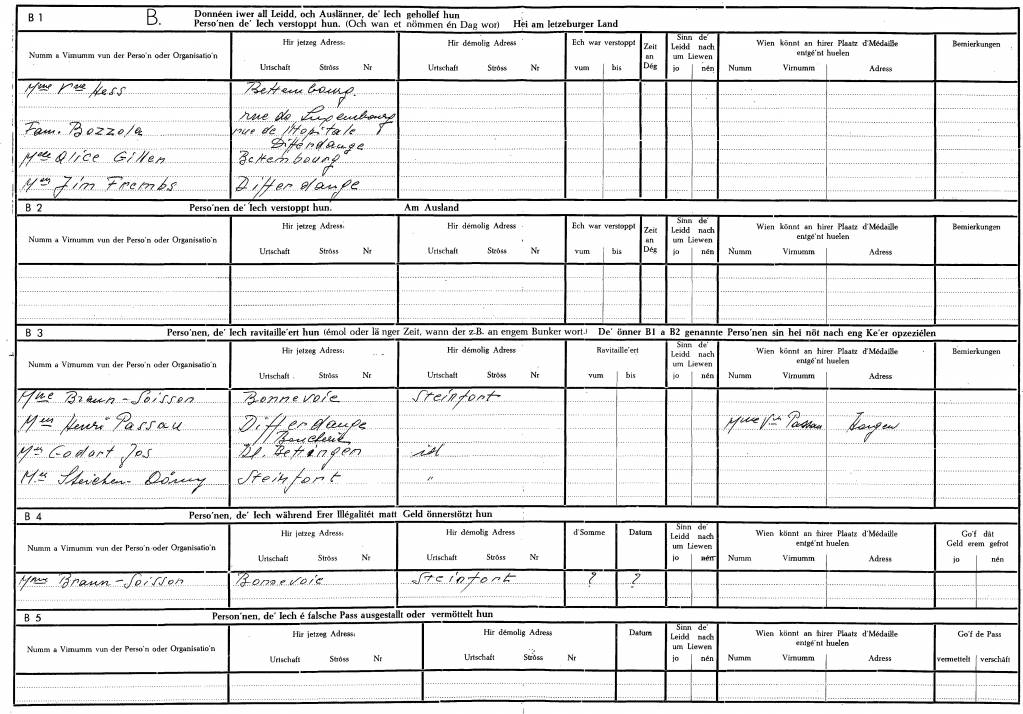 B 1 B. Donnéen iwer all Leidd, och Auslänner, de' Iech gehollef hun
Perso'nen de' Iech verstoppt hun. (Och wan et nömmen én Dag wor) Hei am letzeburger Land
Numm a Virnumm vun der Perso'n oder Organisatio'n
Hir jetzeg Adress:
Urtschaft Ströss Nr
Hir démolig Adress
Urtschaft Ströss Nr
Ech war verstoppt
vum bis
Zeit
an
Dég
Sinn de'
Leidd nach
um Liewen
jo nén
Wien könnt an hirer Plaatz d'Médaille
entgé'nt huelen
Numm Virnumm Adress
Bemierkungen
Mme Vve Hess Bettembourg.
rue de Luxembourg
Fam. Bozzola rue de l'Hopitale
Differdange
Mlle Alice Gillen Bettembourg
Mr Jim Frembs Differdange
B 2 Perso'nen de' Iech verstoppt hun. Am Ausland
Numm a Virnumm vun der Perso'n oder Organisatio'n
Hir jetzeg Adress:
Urtschaft Ströss Nr
Hir démolig Adress
Urtschaft Ströss Nr
Ech war verstoppt
vum bis
Zeit
an
Dég
Sinn de'
Leidd nach
um Liewen
jo nén
Wien könnt an hirer Plaatz d'Médaille
entgé'nt huelen
Numm Virnumm Adress
B 3 Perso'nen, de' Iech ravitaille'ert hun (émol oder lä nger Zeit, wann der z.B. an engem Bunker wort.) De' önner B1 a B2 genannte Perso'nen sin hei nöt nach eng Ke'er opzeziélen
Numm a Virnumm vun der Perso'n oder Organisatio'n
Hir jetzeg Adress:
Urtschaft Ströss Nr
Hir démolig Adress
Urtschaft Ströss Nr
Ravitaille'ert
vum bis
Sinn de'
Leidd nach
um Liewen
jo nén
Wien könnt an hirer Plaatz d'Médaille
entgé'nt huelen
Numm Virnumm Adress
Bemierkungen
Mme Braun-Soisson Bonnevoie Steinfort
Henri Passau Differdange Mme Passau
Godart Jos Bettingen
Steichen Steinfort "
B 4 Perso'nen, de' Iech während Erer Illégalitét matt Geld önnerstötzt hun
Numm a Virnumm vun der Perso'n oder Organisatio'n
Hir jetzeg Adress:
Urtschaft Ströss Nr
Hir démolig Adress
Urtschaft Ströss Nr
d'Somme
Datum
Sinn de'
Leidd nach
um Liewen
jo nén
Wien könnt an hirer Plaatz d'Médaille
entgé'nt huelen
Numm Virnumm Adress
Go'f dät
Geld erem gefrot
jo nén
Mme Braun-Soisson Bonnevoie Steinfort ? ?
B 5 Person'nen, de' Iech é falsche Pass ausgestallt oder vermöttelt hun
Numm a Virnumm vun der Perso'n oder Organisatio'n
Hir jetzeg Adress:
Urtschaft Ströss Nr
Hir démolig Adress
Urtschaft Ströss Nr
Datum
Sinn de'
Leidd nach
um Liewen
jo nén
Wien könnt an hirer Plaatz d'Médaille
entgé'nt huelen
Numm Virnumm Adress
Go'f de Pass
vermettelt verschäft